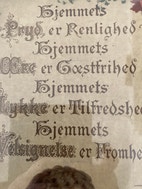 Hjemmets
Pryd er Renlighed
Hjemmets
Ære er Gæstfrihed
Hjemmets
Lykke er Tilfredshe
Hjemmets
Velsignelse er Fromhe